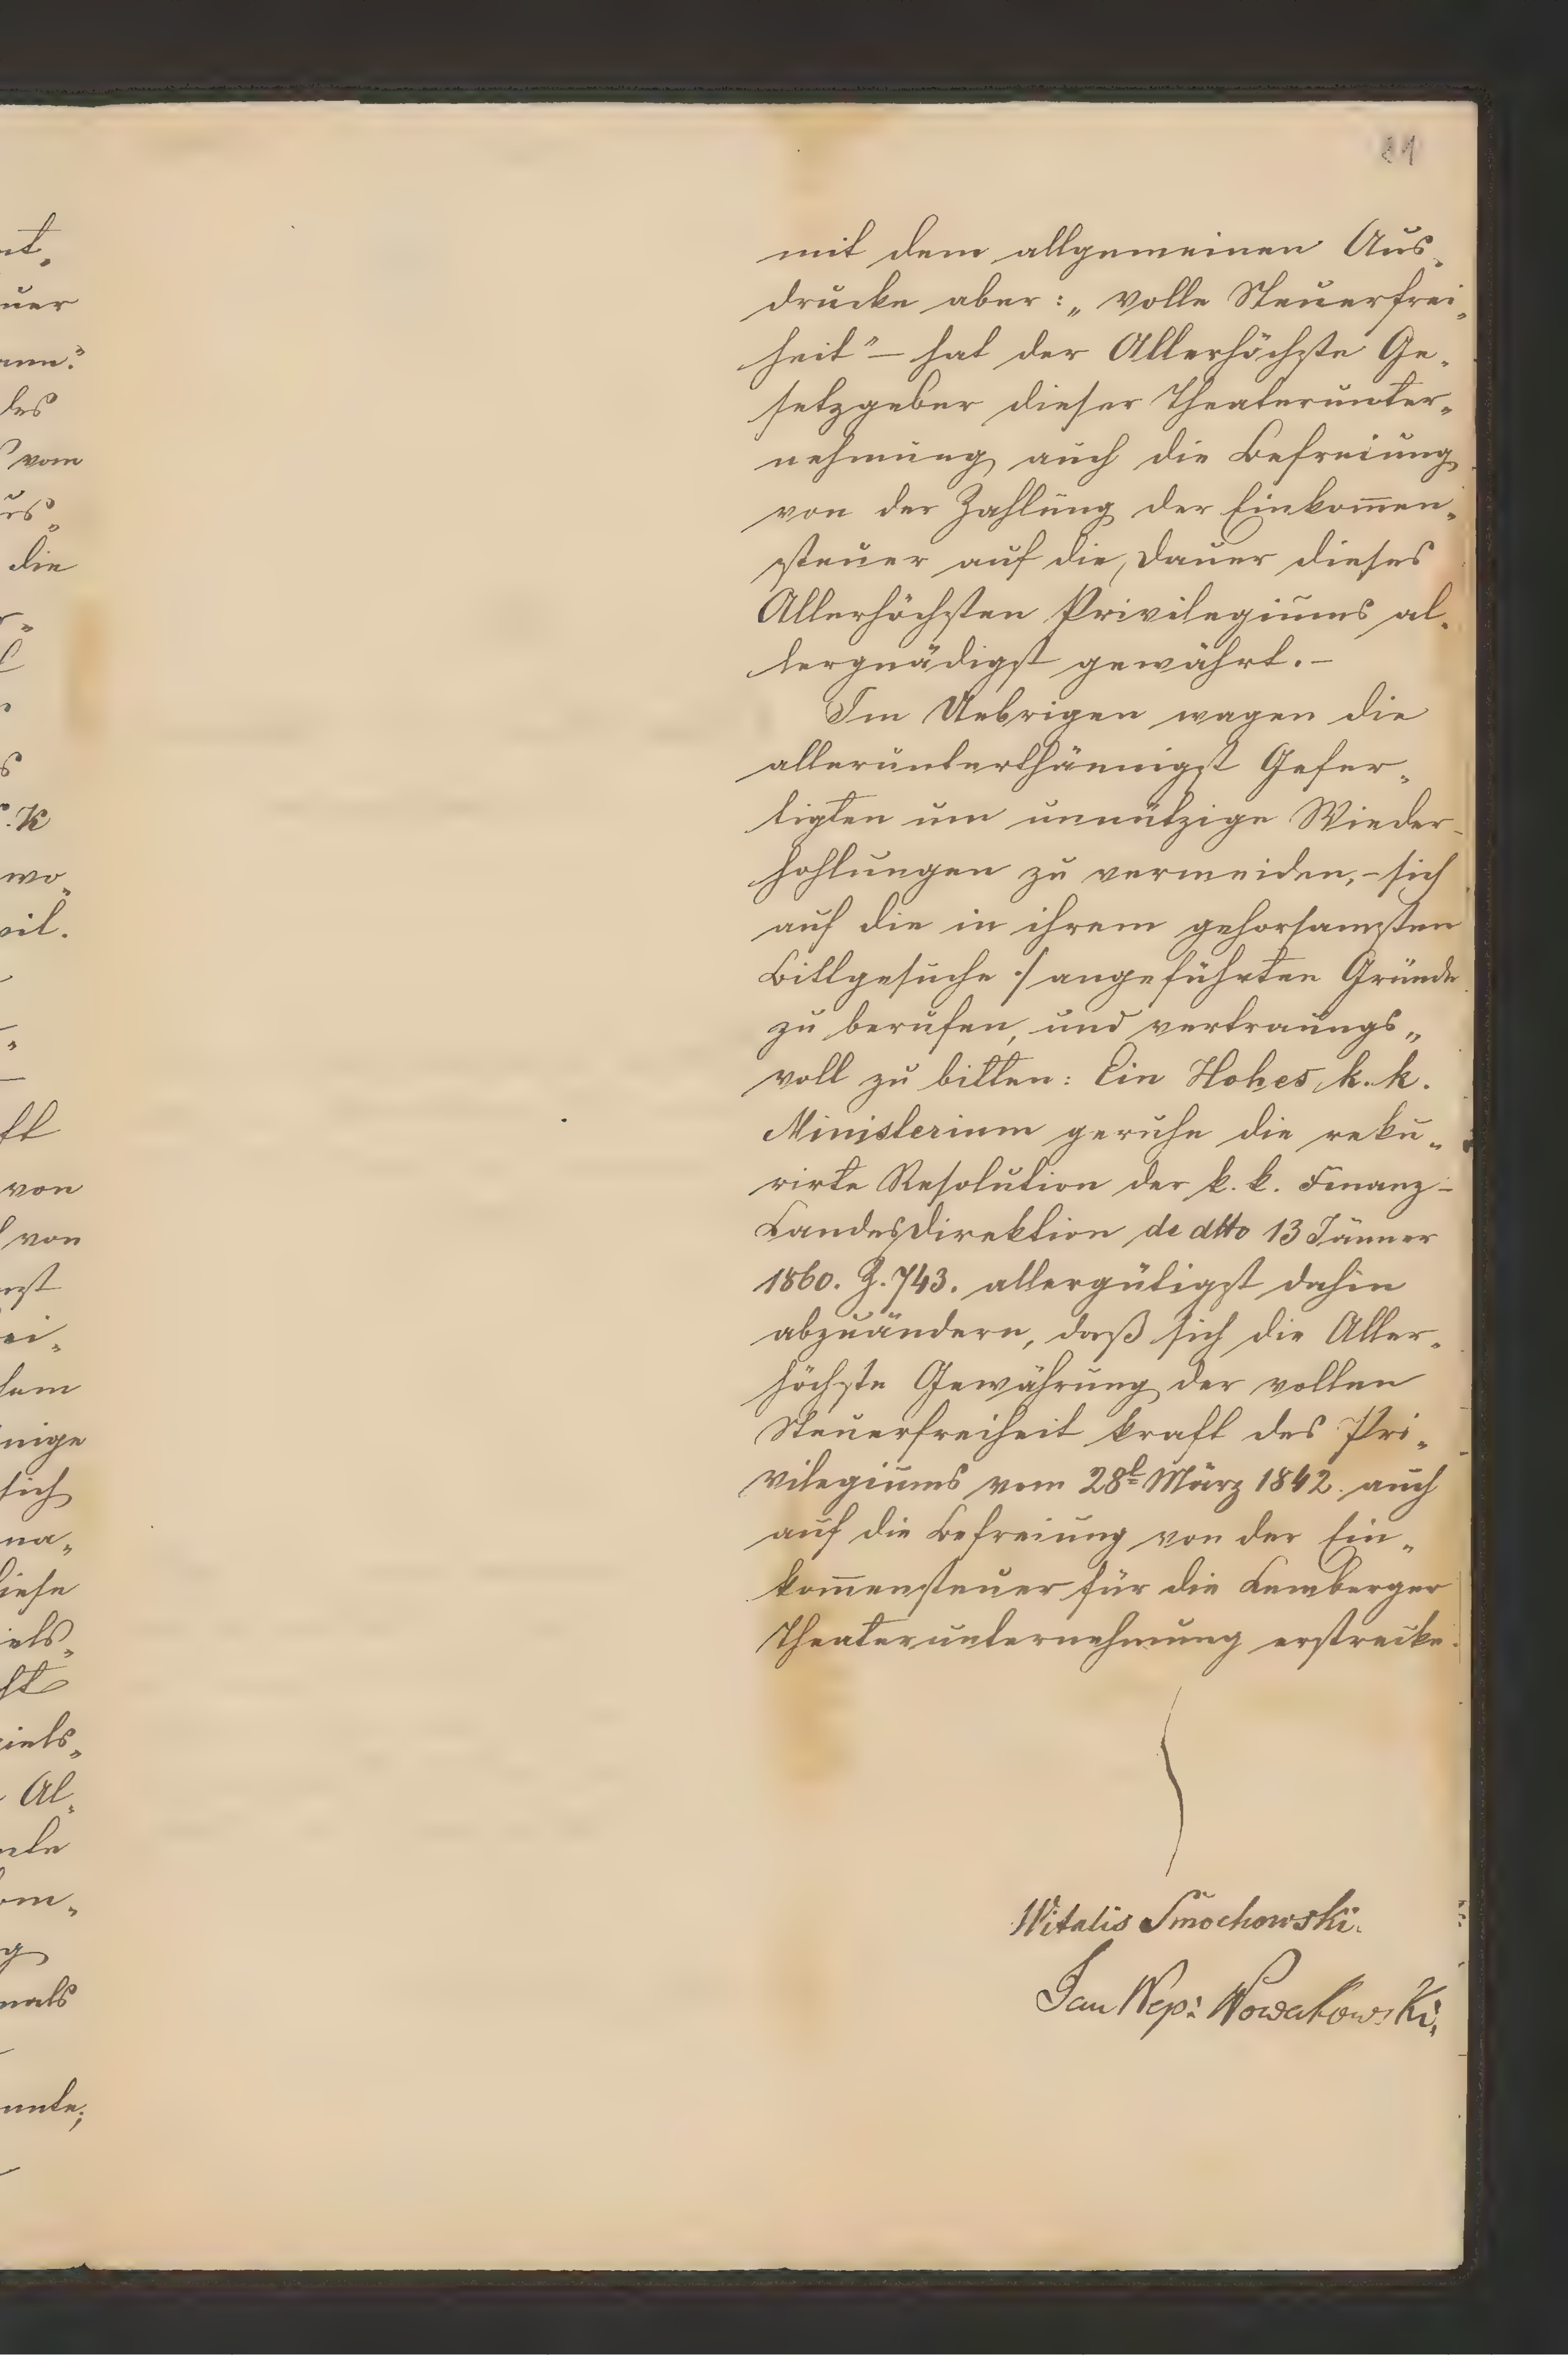 81
mit dem allgemeinen Aus„
drucke aber: „volle Steuerfrei„
heit" – hat der Allerhöchste Ge„
setzgeber dieser Theaterunter„
nehmung auch die Befreiung
von der Zahlung der Einkom̅en„
steuer auf die Dauer dieses
Allerhöchsten Privilegiums al„
lergnädigst gewährt. –
Im Uebrigen wagen die
allerunterthännigst Gefer„
tigten um unnützige Wieder-
hohlungen zu vermeiden, – sich
auf die in ihrem gehorsamsten
Bittgesuche ·/ angeführten Gründe
zu berufen, und vertraungs„
voll zu bitten: Ein Hohes k. k.
Ministerium geruhe die reku„
rirte Resolution der k. k. Finanz-
Landesdirektion de dtto 13 Jänner
1860. Z. 743. allergütigst dahin
abzuändern, daß sich die Aller„
höchste Gewährung der vollen
Steuerfreiheit kraft des Pri„
vilegiums vom 28t März 1842. auch
auf die Befreiung von der Ein„
kom̅ensteuer für die Lemberger
Theaterunternehmung erstrecke.
Witalis Smochowski.
Jan Nep: Nowakowski.
uer
vom
die
wo„
von
von
ei„
nige
sich
na„
Al„